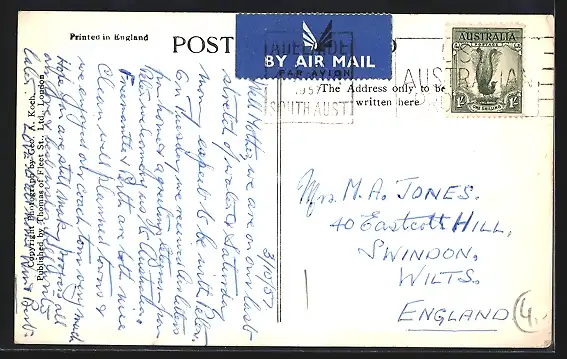 Printed in England
POST
BY AIR MAIL
PAR AVION
ADELAIDE
1957
SOUTH AUST
AUSTRALIA
POSTAGE
1/-
1/-
ONE SHILLING
AUSTRALIAN
The Address only to be
written here
3/10/57
Well Mother, we are on our last
stretch of water & Saturday
morning expect to be with Peter.
On Tuesday we received bulletins
from home & greeting letters from
Peter welcoming us to Australia.
Fremantle & Perth are both nice
Clean well planned towns &
we enjoyed our coach tour very much
Hope you are still making good
Love
Mrs. M. A. JONES.
40 Eastcott HILL,
SWINDON,
WILTS.
ENGLAND
4.
Copyright Photograph by Geo. A. Koch
Published by Thomas of Fleet St., Ltd., London